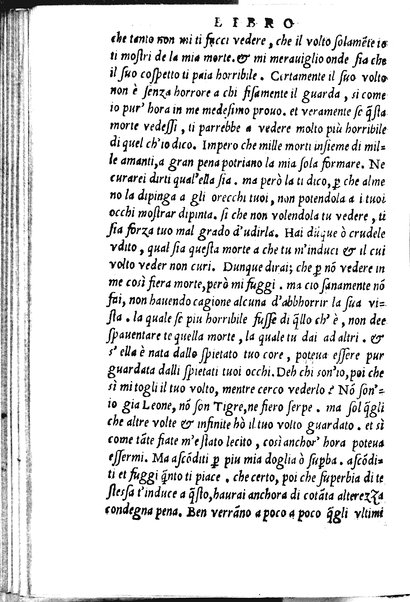 LIBRO
che tanto non mi ti facci vedere, che il volto solamẽte io
ti mostri de la mia morte. & mi merauiglio onde sia che
il suo cospetto ti paia horribile. Certamente il suo volto
non è senza horrore a chi fisamente il guarda, si come
io pur' hora in me medesimo prouo. et veramente se q̃sta
morte vedessi, ti parrebbe a vedere molto più horribile
di quel ch'io dico. Impero che mille morti insieme di mil-
le amanti, a gran pena potriano la mia sola formare. Ne
curarei dirti qual'ella sia. ma però la ti dico, ꝑ che alme
no la dipinga a gli orecchi tuoi, non potendola a i tuoi
occhi mostrar dipinta. si che non volendola tu vedere, ti
sia forza tuo mal grado d'udirla. Hai dũque ò crudele
vdito, qual sia questa morte a che tu m'induci & il cui
volto veder non curi. Dunque dirai; che ꝑ nõ vedere in
me così fiera morte, però mi fuggi. ma cio sanamente nõ
fai, non hauendo cagione alcuna d'abbhorrir la sua vi-
sta. la quale se piu horribile fusse di q̃llo ch' è, non dee
spauentare te quella morte, la quale tu dai ad altri. &
s' ella è nata dallo spietato tuo core, poteua essere pur
guardata dalli spietati tuoi occhi. Deh chi son'io, poi che
sì mi togli il tuo volto, mentre cerco vederlo? Nõ son'-
io gia Leone, nõ son Tigre, ne fiero serpe. ma sol q̃gli
che altre volte & infinite hò il tuo volto guardato. et sì
come tãte fiate m'estato lecito, così anchor' hora poteua
essermi. Ma ascõditi ꝑ piu mia doglia ò suꝑba. ascõdi-
ti et fuggi q̃nto ti piace. che certo, poi che superbia di te
stessa t'induce a q̃sto, haurai anchora di cotãta alterezza
condegna pena. Ben verrãno a poco a poco q̃gli vltimi